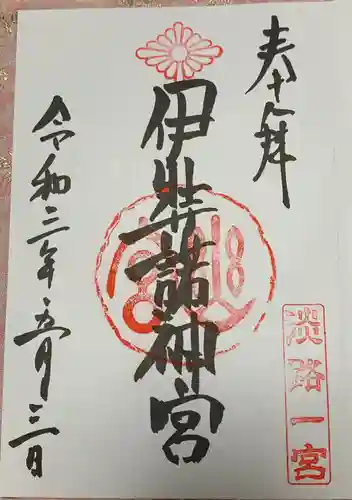 奉拝
伊弉諾神宮
令和三年五月三日
淡路一宮